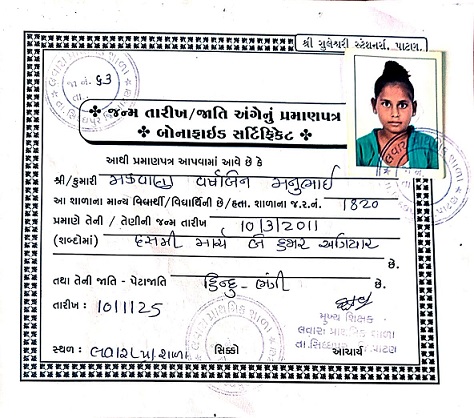 શ્રી સુલેશ્વરી સ્ટેશનર્સ, પાટણ.
જા નં. ૬૩
તા.
❖ જન્મ તારીખ/જાતિ અંગેનું પ્રમાણપત્ર
❖ બોનાફાઈડ સર્ટિફિકેટ ❖
આથી પ્રમાણપત્ર આપવામાં આવે છે કે
શ્રી/કુમારી મકવાણા મનુભાઈ
આ શાળાના માન્ય વિદ્યાર્થી/વિદ્યાર્થિની છે/હતા. શાળાના જ.ર.નં. 1820
પ્રમાણે તેની / તેણીની જન્મ તારીખ 10/3/2011
(શબ્દોમાં) દસમી માર્ચ બે હજાર અગિયાર
છે.
તથા તેની જાતિ - પેટાજાતિ હિન્દુ - ભંગી છે.
તારીખ : 10/1/25
મુખ્ય શિક્ષક
લવારા પ્રાથમિક શાળા
તા.સિધ્ધપુર જિ.પાટણ
સ્થળ : લવારા પ્રા શાળા સિક્કો આચાર્ય